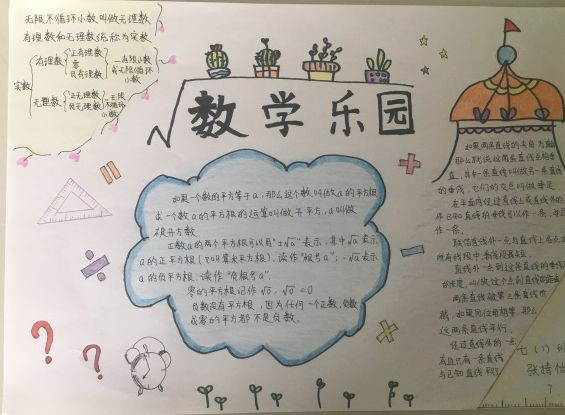 无限不循环小数叫做无理数
有理数和无理数统称为实数
实数
有理数
正有理数
零
负有理数
有限小数
或无限循环
小数
无理数
正无理数
负无理数
无限
不循环
小数
数学乐园
如果一个数的平方等于a，那么这个数叫做a的平方根
求一个数a的平方根的运算叫做开平方，a叫做
被开方数
正数a的两个平方根可以用“±√a”表示，其中√a表示
a的正平方根(又叫算术平方根)，读作“根号a”；-√a表示
a的负平方根，读作“负根号a”.
零的平方根记作√0，√0=0
负数没有平方根，因为任何一个正数、负数
或零的平方都不是负数.
如果两条直线的夹角为直
那么就说这两条直线互相垂
直，其中一条直线叫做另一条直线
的垂线，它们的交点叫做垂足
在平面内经过直线上或直线外的一
作一条.
联结直线外一点与直线上各点的
所有线段中，垂线段最短.
直线外一点到这条直线的垂线段
的长度，叫做这个点到直线的距离
两条直线被第三条直线所
截，如果同位角相等，那么
这两条直线平行.
经过直线外的一点
有且只有一条直线
与已知直线平行
七(1)班
7